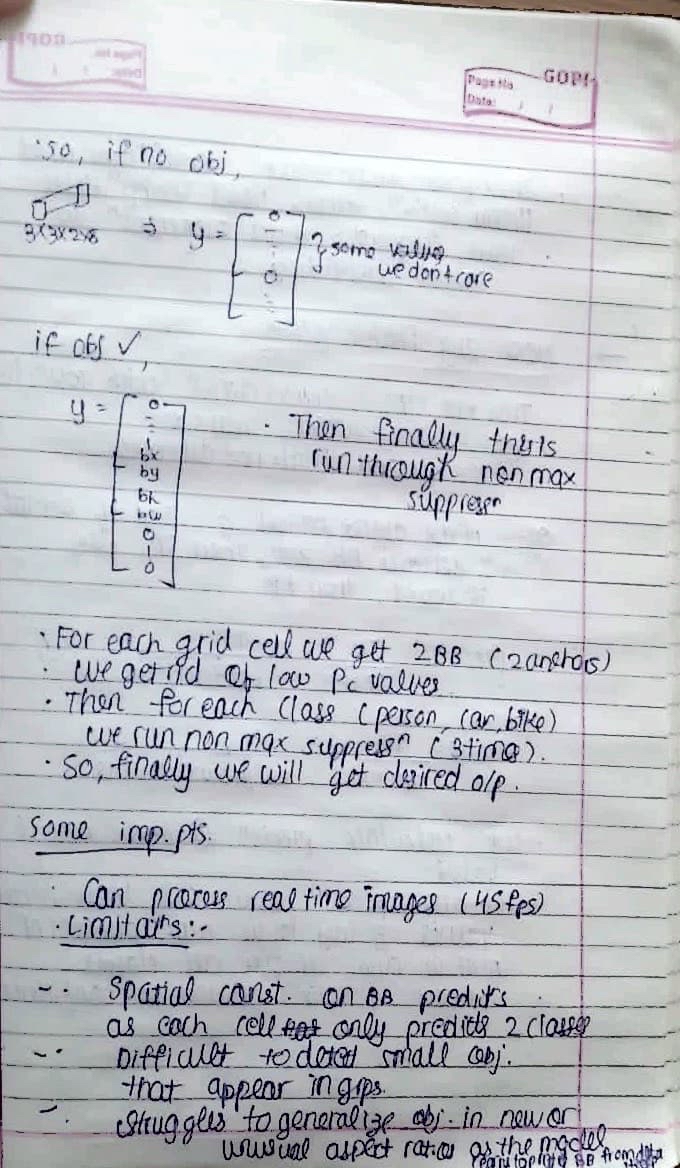 GOPI
Page No
Date: / /
·so, if no obj,
3x3x2x8 ⇒ y = [ 0 - : - 0 - : - ] } some values
we don't care
if obj ✓,
y = [ 0 - : - 1 bx by bh bw 0 - 0 ]
· Then finally this is
run through non max
suppressn
· For each grid cell we get 2 BB (2 anchors)
· we get rid of low Pc values
· Then for each class (person, car, bike)
we run non max suppressn (3 time).
· So, finally we will get desired o/p.
Some imp. pts.
· Can process real time images (45 fps)
· Limitatns:-
- · Spatial const. on BB predictns
as each cell only predicts 2 classes
- · Difficult to detect small obj.
that appear in grps.
- · Struggles to generalize obj. in new or
unusual aspect ratios as the model
BB from data